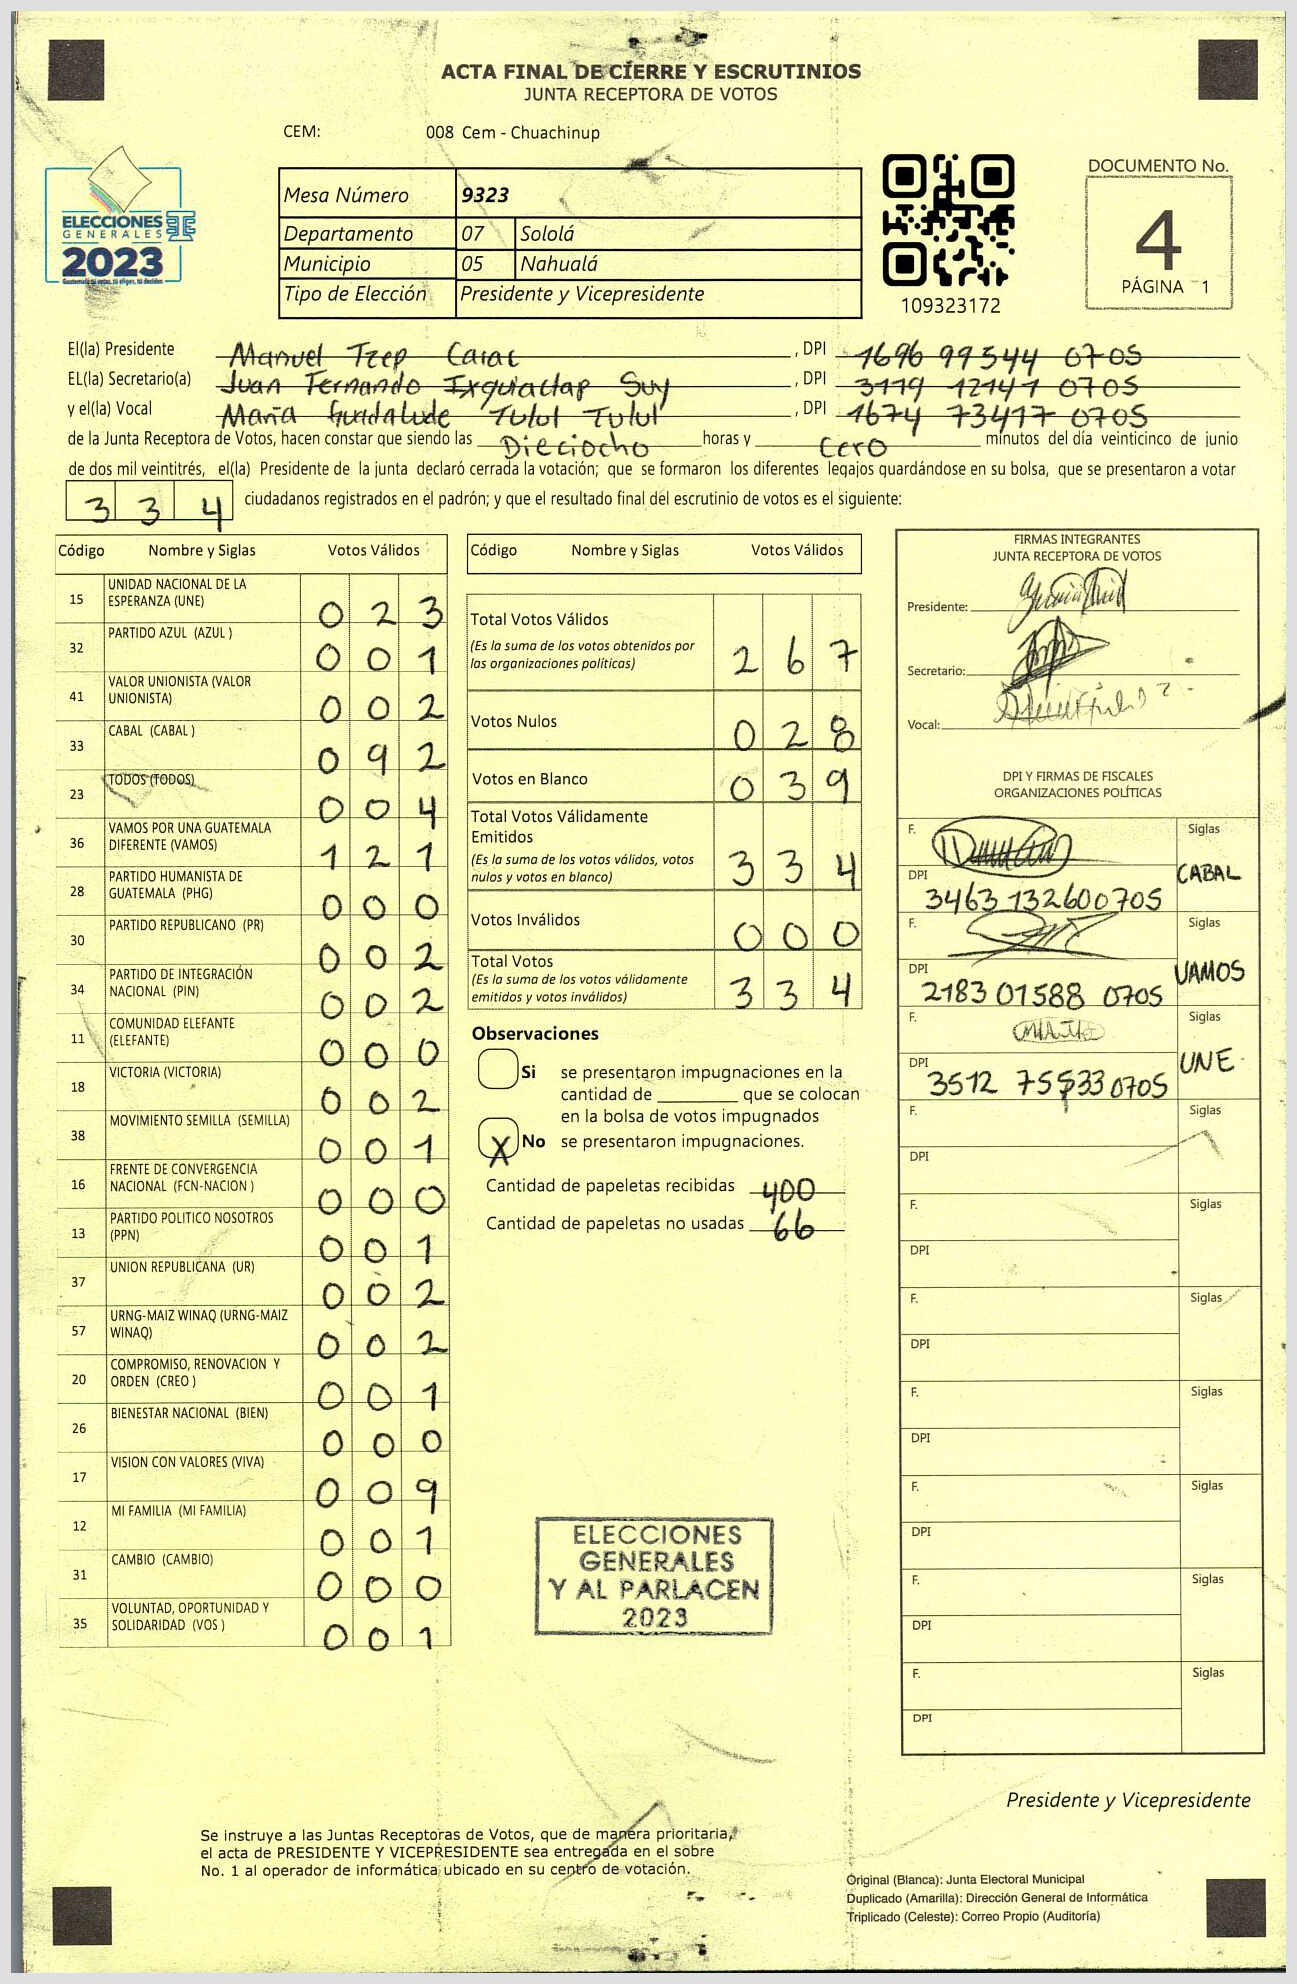 ACTA FINAL DE CIERRE Y ESCRUTINIOS
JUNTA RECEPTORA DE VOTOS
CEM: 008 Cem - Chuachinup
ELECCIONES
GENERALES
2023
Guatemala tú votas, tú eliges, tú decides
Mesa Número 9323
Departamento 07 Sololá
Municipio 05 Nahualá
Tipo de Elección Presidente y Vicepresidente
109323172
DOCUMENTO No.
4
PÁGINA 1
El(la) Presidente Manuel Tzep Carac, DPI 1696 99544 0705
EL(la) Secretario(a) Juan Fernando Ixquiactap Suy, DPI 3119 12141 0705
y el(la) Vocal María Guadalude Tulul Tulul, DPI 1674 73417 0705
de la Junta Receptora de Votos, hacen constar que siendo las Dieciocho horas y Cero minutos del día veinticinco de junio
de dos mil veintitrés, el(la) Presidente de la junta declaró cerrada la votación; que se formaron los diferentes legajos guardándose en su bolsa, que se presentaron a votar
3 3 4 ciudadanos registrados en el padrón; y que el resultado final del escrutinio de votos es el siguiente:
Código Nombre y Siglas Votos Válidos
15 UNIDAD NACIONAL DE LA ESPERANZA (UNE) 0 2 3
32 PARTIDO AZUL (AZUL ) 0 0 1
41 VALOR UNIONISTA (VALOR UNIONISTA) 0 0 2
33 CABAL (CABAL ) 0 9 2
23 TODOS (TODOS) 0 0 4
36 VAMOS POR UNA GUATEMALA DIFERENTE (VAMOS) 1 2 1
28 PARTIDO HUMANISTA DE GUATEMALA (PHG) 0 0 0
30 PARTIDO REPUBLICANO (PR) 0 0 2
34 PARTIDO DE INTEGRACIÓN NACIONAL (PIN) 0 0 2
11 COMUNIDAD ELEFANTE (ELEFANTE) 0 0 0
18 VICTORIA (VICTORIA) 0 0 2
38 MOVIMIENTO SEMILLA (SEMILLA) 0 0 1
16 FRENTE DE CONVERGENCIA NACIONAL (FCN-NACION ) 0 0 0
13 PARTIDO POLITICO NOSOTROS (PPN) 0 0 1
37 UNION REPUBLICANA (UR) 0 0 2
57 URNG-MAIZ WINAQ (URNG-MAIZ WINAQ) 0 0 2
20 COMPROMISO, RENOVACION Y ORDEN (CREO ) 0 0 1
26 BIENESTAR NACIONAL (BIEN) 0 0 0
17 VISION CON VALORES (VIVA) 0 0 9
12 MI FAMILIA (MI FAMILIA) 0 0 1
31 CAMBIO (CAMBIO) 0 0 0
35 VOLUNTAD, OPORTUNIDAD Y SOLIDARIDAD (VOS ) 0 0 1
Código Nombre y Siglas Votos Válidos
Total Votos Válidos 2 6 7
(Es la suma de los votos obtenidos por
las organizaciones políticas)
Votos Nulos 0 2 8
Votos en Blanco 0 3 9
Total Votos Válidamente
Emitidos 3 3 4
(Es la suma de los votos válidos, votos
nulos y votos en blanco)
Votos Inválidos 0 0 0
Total Votos 3 3 4
(Es la suma de los votos válidamente
emitidos y votos inválidos)
Observaciones
Si se presentaron impugnaciones en la
cantidad de ________ que se colocan
en la bolsa de votos impugnados
X No se presentaron impugnaciones.
Cantidad de papeletas recibidas 400
Cantidad de papeletas no usadas 66
ELECCIONES
GENERALES
Y AL PARLACEN
2023
FIRMAS INTEGRANTES
JUNTA RECEPTORA DE VOTOS
Presidente:
Secretario:
Vocal:
DPI Y FIRMAS DE FISCALES
ORGANIZACIONES POLÍTICAS
F. Siglas CABAL
DPI 3463 13260 0705
F. Siglas VAMOS
DPI 2183 01588 0705
F. Siglas UNE
DPI 3512 75533 0705
F. Siglas
DPI
F. Siglas
DPI
F. Siglas
DPI
F. Siglas
DPI
F. Siglas
DPI
F. Siglas
DPI
F. Siglas
DPI
Presidente y Vicepresidente
Se instruye a las Juntas Receptoras de Votos, que de manera prioritaria,
el acta de PRESIDENTE Y VICEPRESIDENTE sea entregada en el sobre
No. 1 al operador de informática ubicado en su centro de votación.
Original (Blanca): Junta Electoral Municipal
Duplicado (Amarilla): Dirección General de Informática
Triplicado (Celeste): Correo Propio (Auditoría)